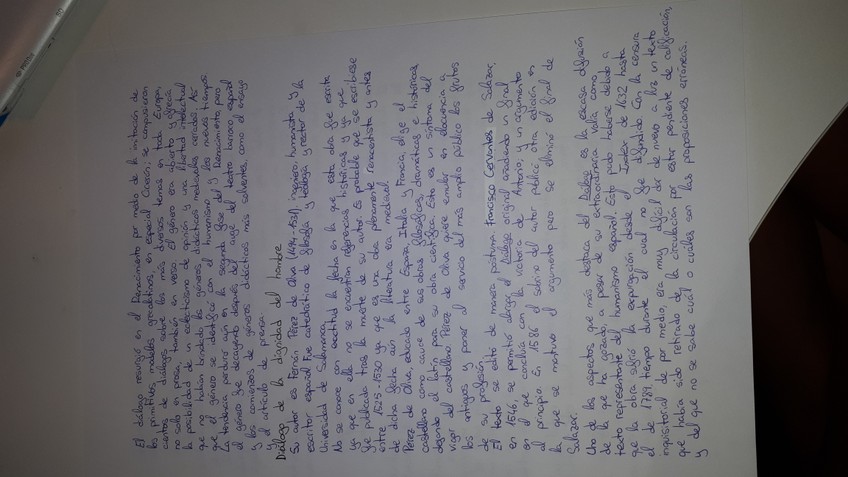 El diálogo resurgió en el Renacimiento por medio de la imitación de
los primitivos modelos grecolatinos, en especial Cicerón; se compusieron
cientos de diálogos sobre los más diversos temas en toda Europa,
no solo en prosa, también en verso. El género era abierto y ofrecía
la posibilidad de un eclecticismo de opinión y una libertad intelectual
que no habían brindado los géneros didácticos medievales cerrados. Así
que el género se identifica con el humanismo y los nuevos tiempos.
La tendencia perduró aún en la segunda fase del Renacimiento, pero
el género fue decayendo después del auge del teatro barroco español
y los comienzos de géneros didácticos más solventes, como el ensayo
y el artículo de prensa.
Diálogo de la dignidad del hombre
Su autor es Fernán Pérez de Oliva (1494-1531), ingeniero, humanista y
escritor español. Fue catedrático de filosofía y teología y rector de la
Universidad de Salamanca.
No se conoce con exactitud la fecha en la que esta obra fue escrita
ya que en ella no se encuentran referencias históricas y ya que
fue publicado tras la muerte de su autor. Es probable que se escribiese
entre 1525-1530 ya que es una obra plenamente renacentista y antes
de dicha fecha aún la literatura era medieval.
Pérez de Oliva, educado entre España, Italia y Francia, elige el
castellano como cauce de sus obras filosóficas, dramáticas e históricas,
dejando el latín para su obra científica. Esto es un síntoma del
vigor del castellano. Pérez de Oliva quiere emular en elocuencia a
los antiguos y poner al servicio del más amplio público los frutos
de su profesión.
El texto se editó de manera póstuma. Francisco Cervantes de Salazar,
en 1546, se permitió alargar el Diálogo original añadiendo un final
en el que concluía con la victoria de Antonio, y un argumento
al principio. En 1586 el sobrino del autor publica otra edición en
la que se mantuvo el argumento pero se eliminó el final de
Salazar.
Uno de los aspectos que más destaca del Diálogo es la escasa difusión
de la que ha gozado a pesar de su extraordinaria valía como
texto representante del humanismo español. Esto pudo haberse debido a
que la obra sufrió la expurgación desde el Índex de 1632 hasta
el de 1789, tiempo durante el cual no fue difundido. Con la censura
inquisitorial de por medio, era muy difícil dar de nuevo a luz un texto
que había sido retirado de la circulación por estar pendiente de calificación,
y del que no se sabe cuál o cuáles son las proposiciones erróneas.